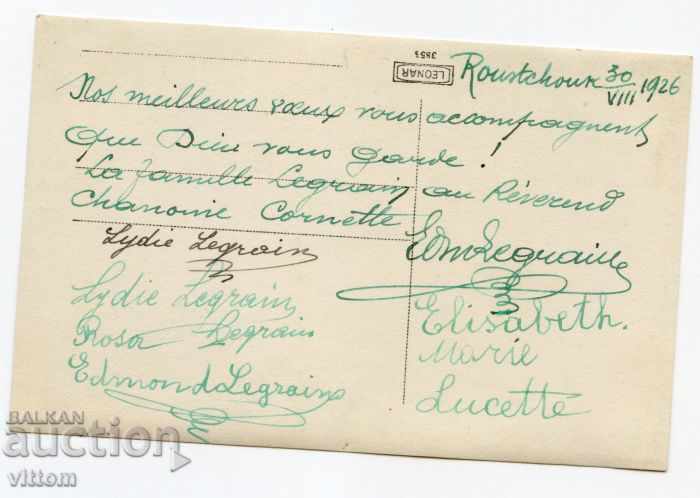 LEONAR
3853
Roustchouk 30/VIII 1926
Nos meilleurs vœux vous accompagnent
Que Dieu vous garde !
La famille Legrain au Révérend
Chanoine Cornette
Lydie Legrain
Edm Legrain
Lydie Legrain
Rosa Legrain
Edmond Legrain
Elisabeth.
Marie
Lucette
BALKAN
auction
vittom